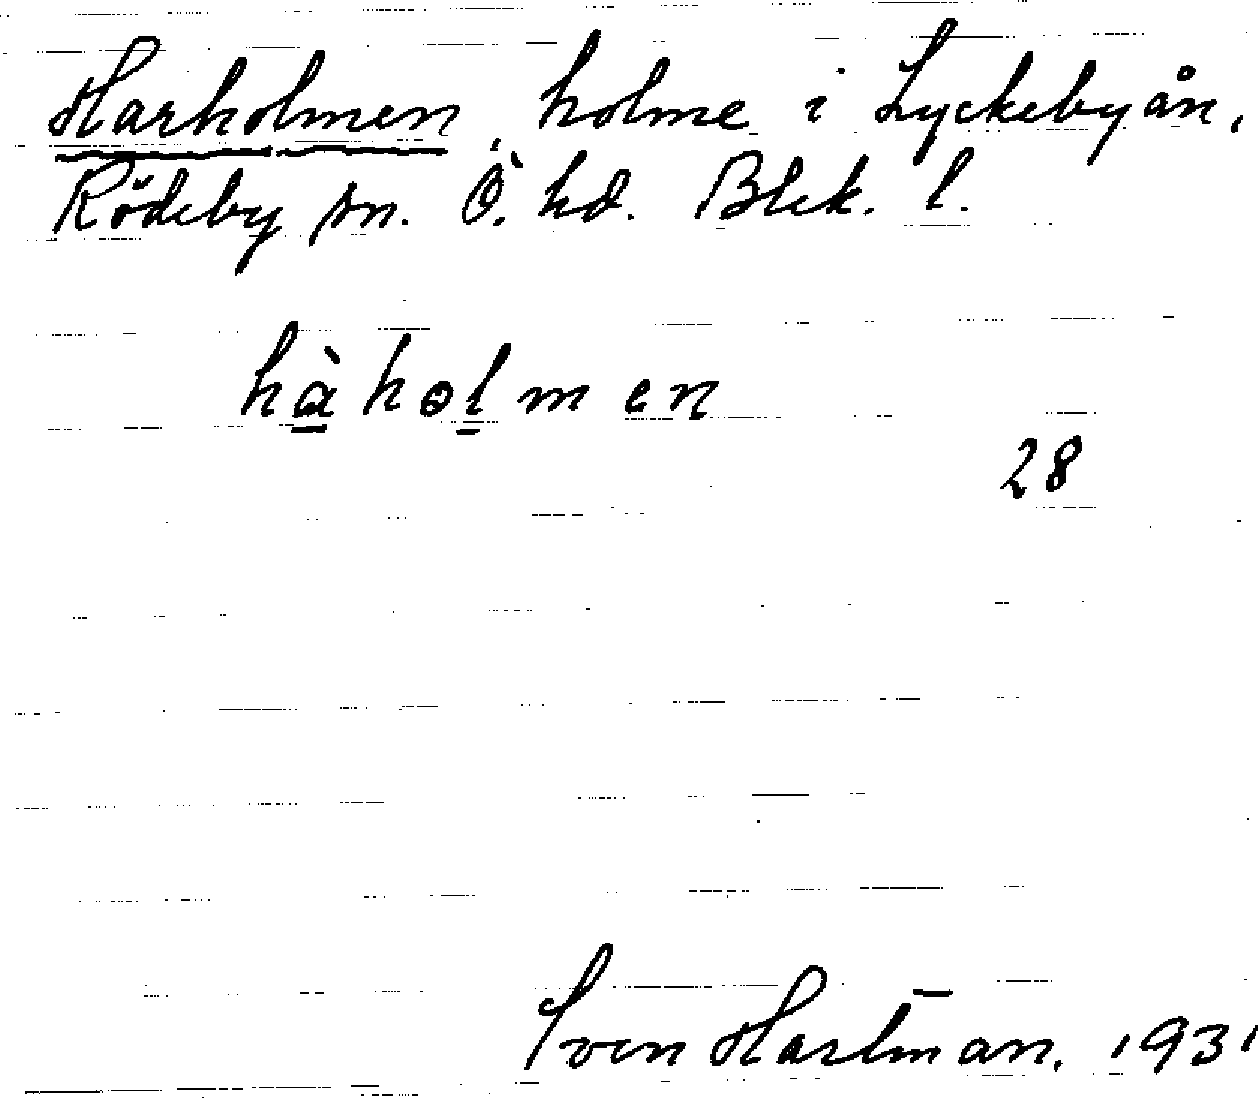 Harholmen, holme i Lyckebyån,
Rödeby sn. Ö. hd. Blek. l.
hàholmen
28
Sven Hartman. 1931